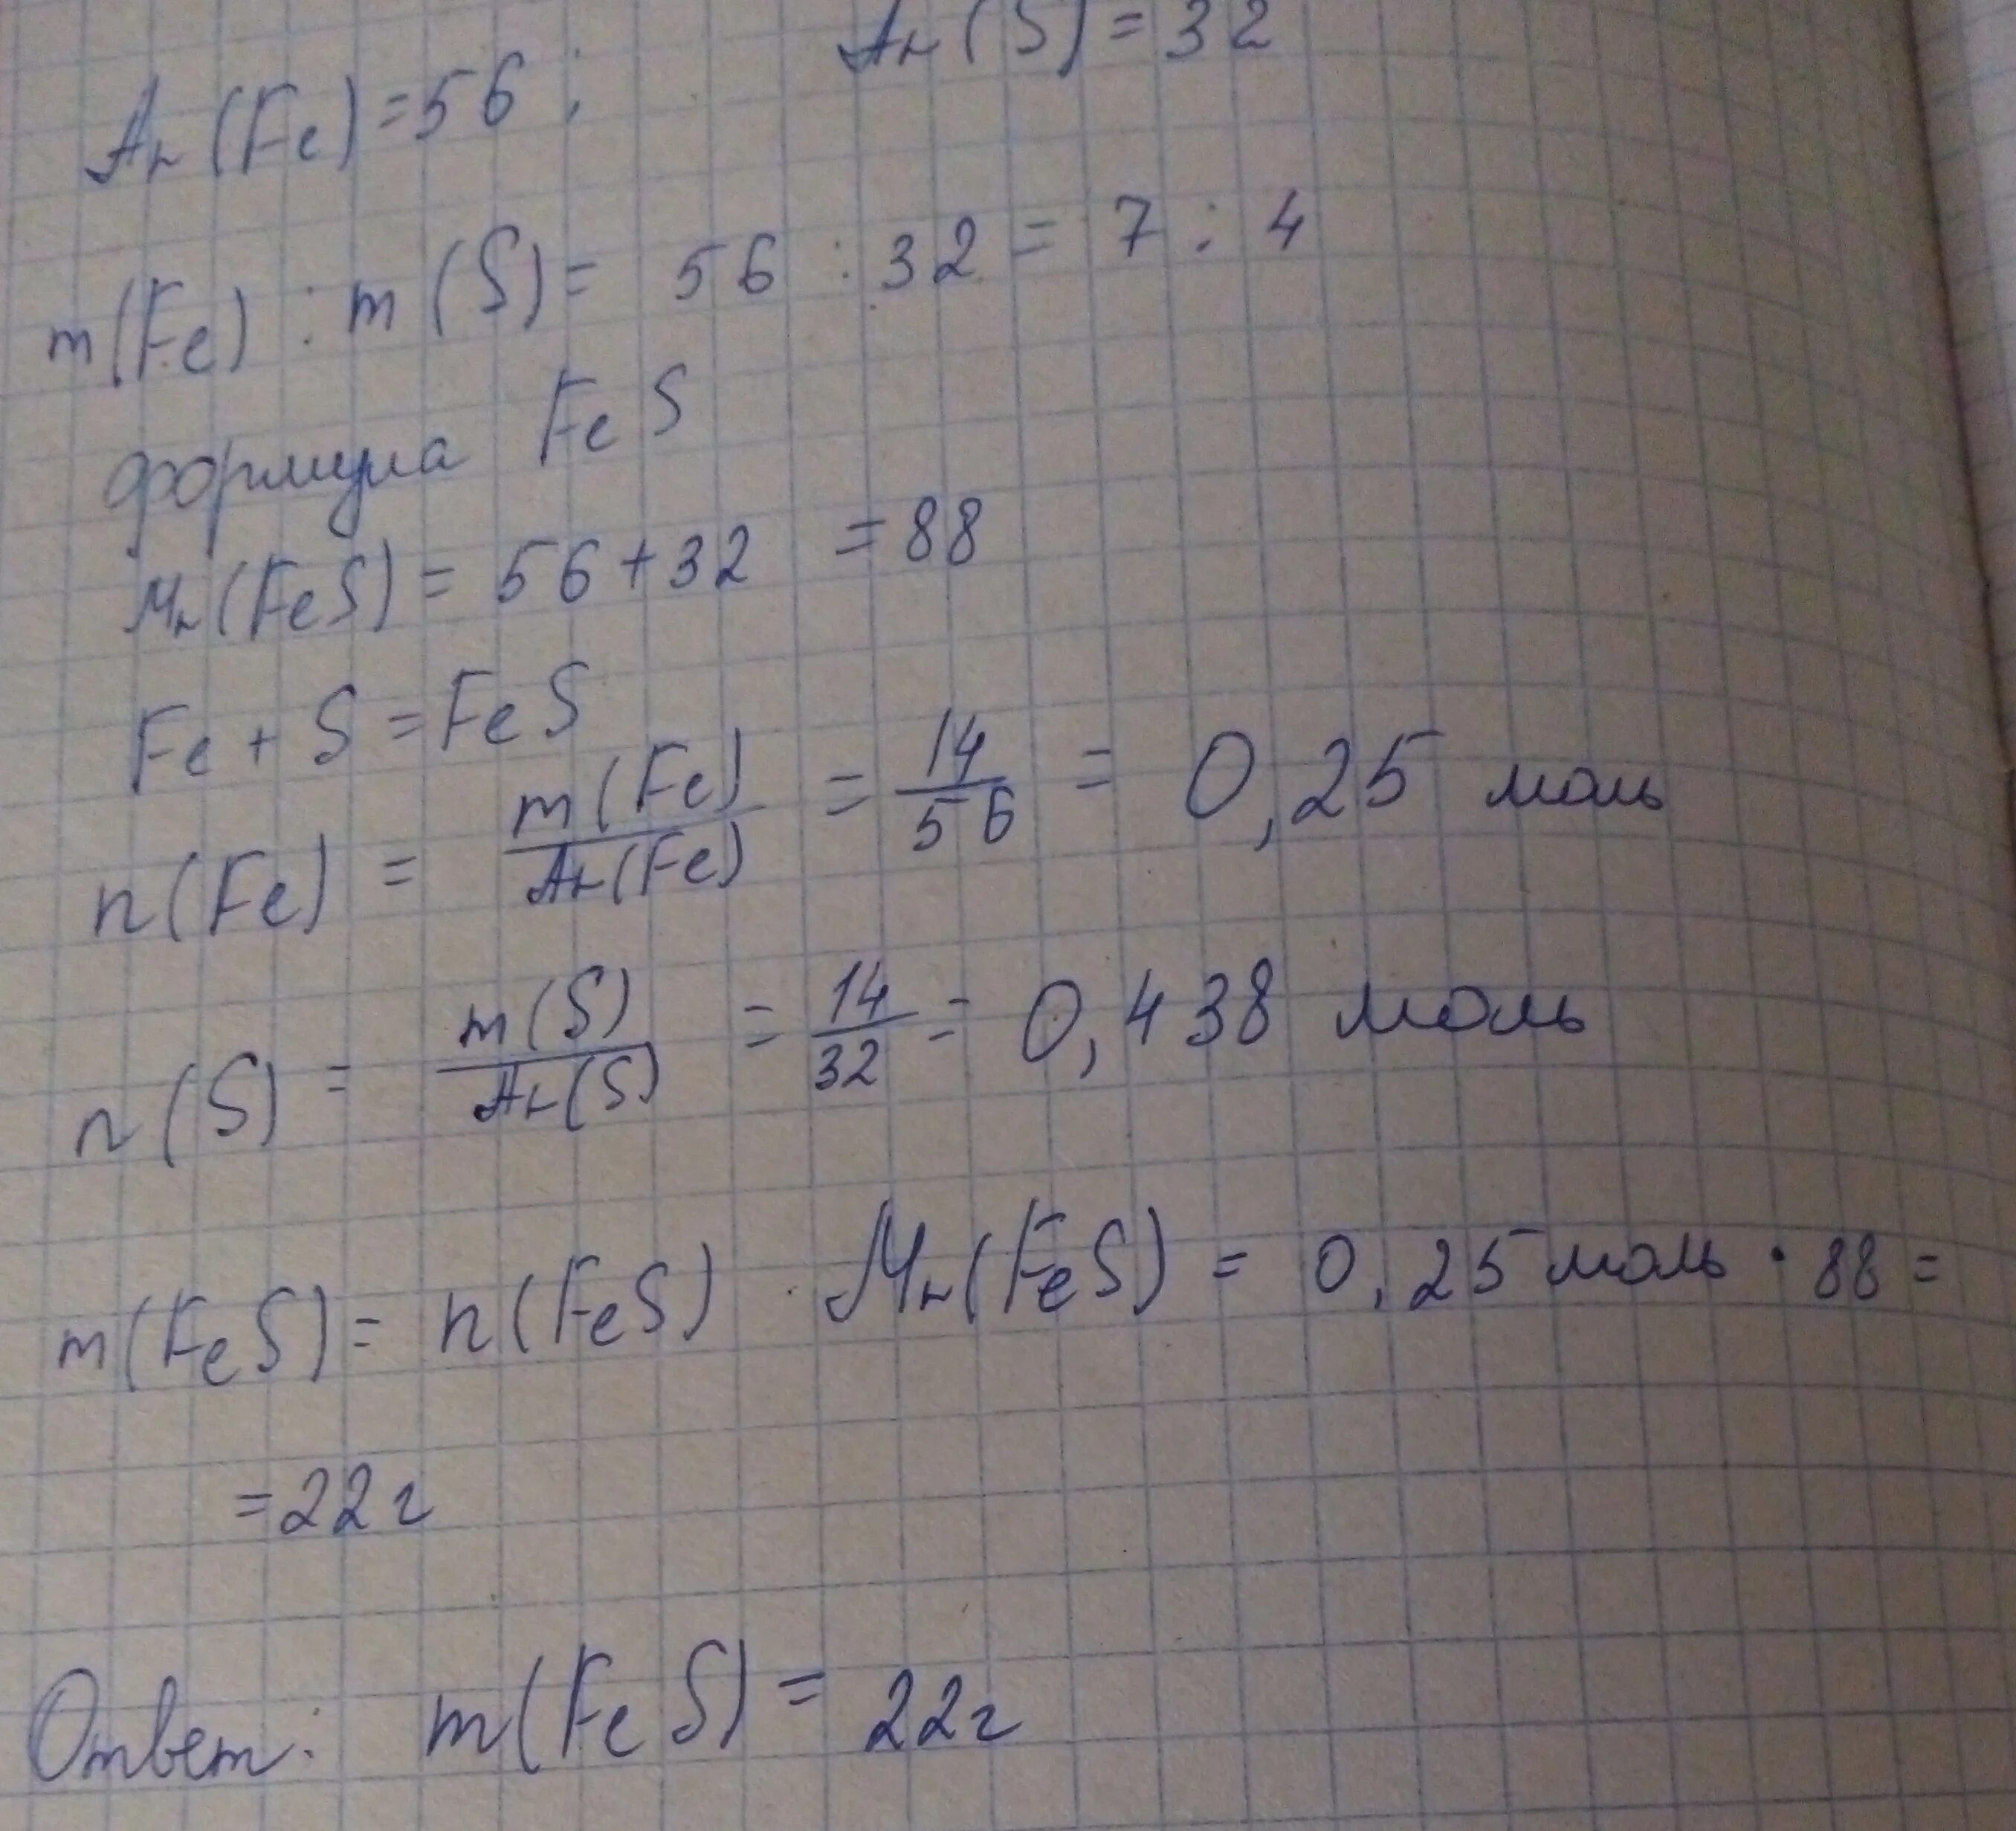 Ar(Fe)=56; Ar(S)=32
m(Fe) : m(S)= 56 : 32 = 7 : 4
формула FeS
Mr(FeS)= 56+32 =88
Fe + S = FeS
n(Fe) = m(Fe)/Ar(Fe) = 14/56 = 0,25 моль
n(S) = m(S)/Ar(S) = 14/32 = 0,438 моль
m(FeS)= n(FeS) · Mr(FeS) = 0,25 моль · 88 =
=22г
Ответ: m(FeS)= 22г